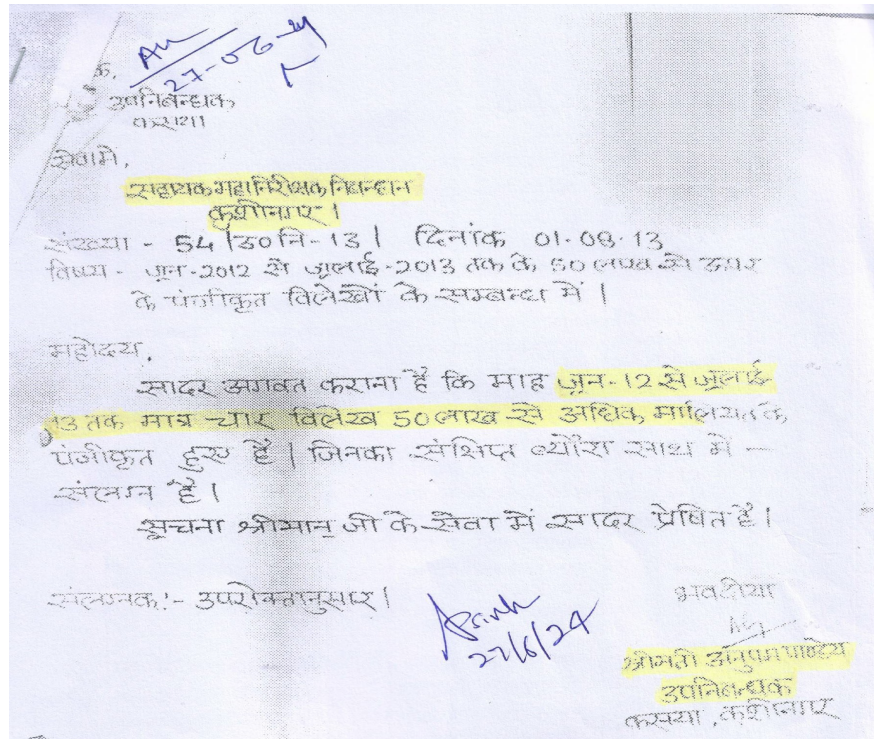 27-06-24
क,
उपनिबन्धक,
कसया
सेवामें,
सहायक महानिरीक्षक, निबन्धन
कुशीनगर।
संख्या - 54/उ०नि-13/ दिनांक 01.08.13
विषय - जून-2012 से जुलाई-2013 तक के 50 लाख से ऊपर
के पंजीकृत विलेखों के सम्बन्ध में।
महोदय,
सादर अवगत कराना है कि माह जून-12 से जुलाई-
13 तक मात्र चार विलेख 50 लाख से अधिक मालियत के
पंजीकृत हुए हैं। जिनका संक्षिप्त ब्यौरा साथ में -
संलग्न है।
सूचना श्रीमान् जी के सेवा में सादर प्रेषित है।
संलग्नक:- उपरोक्तानुसार।
भवदीया
27/6/24
श्रीमती अनुपम पाण्डेय
उपनिबन्धक
कसया, कुशीनगर